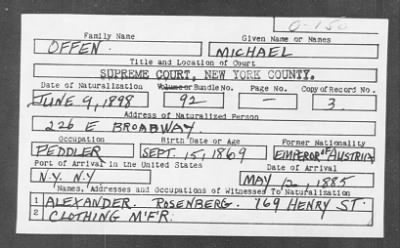 O-150
Family Name Given Name or Names
OFFEN MICHAEL
Title and Location of Court
SUPREME COURT, NEW YORK COUNTY.
Date of Naturalization Volume or Bundle No. Page No. Copy of Record No.
JUNE 9, 1898 92 — 3
Address of Naturalized Person
226 E BROADWAY
Occupation Birth Date or Age Former Nationality
PEDDLER SEPT. 15, 1869 EMPEROR OF AUSTRIA
Port of Arrival in the United States Date of Arrival
N.Y. N.Y MAY 12, 1885
Names, Addresses and Occupations of Witnesses To Naturalization
1 ALEXANDER ROSENBERG. 169 HENRY ST.
2 CLOTHING M'F'R.